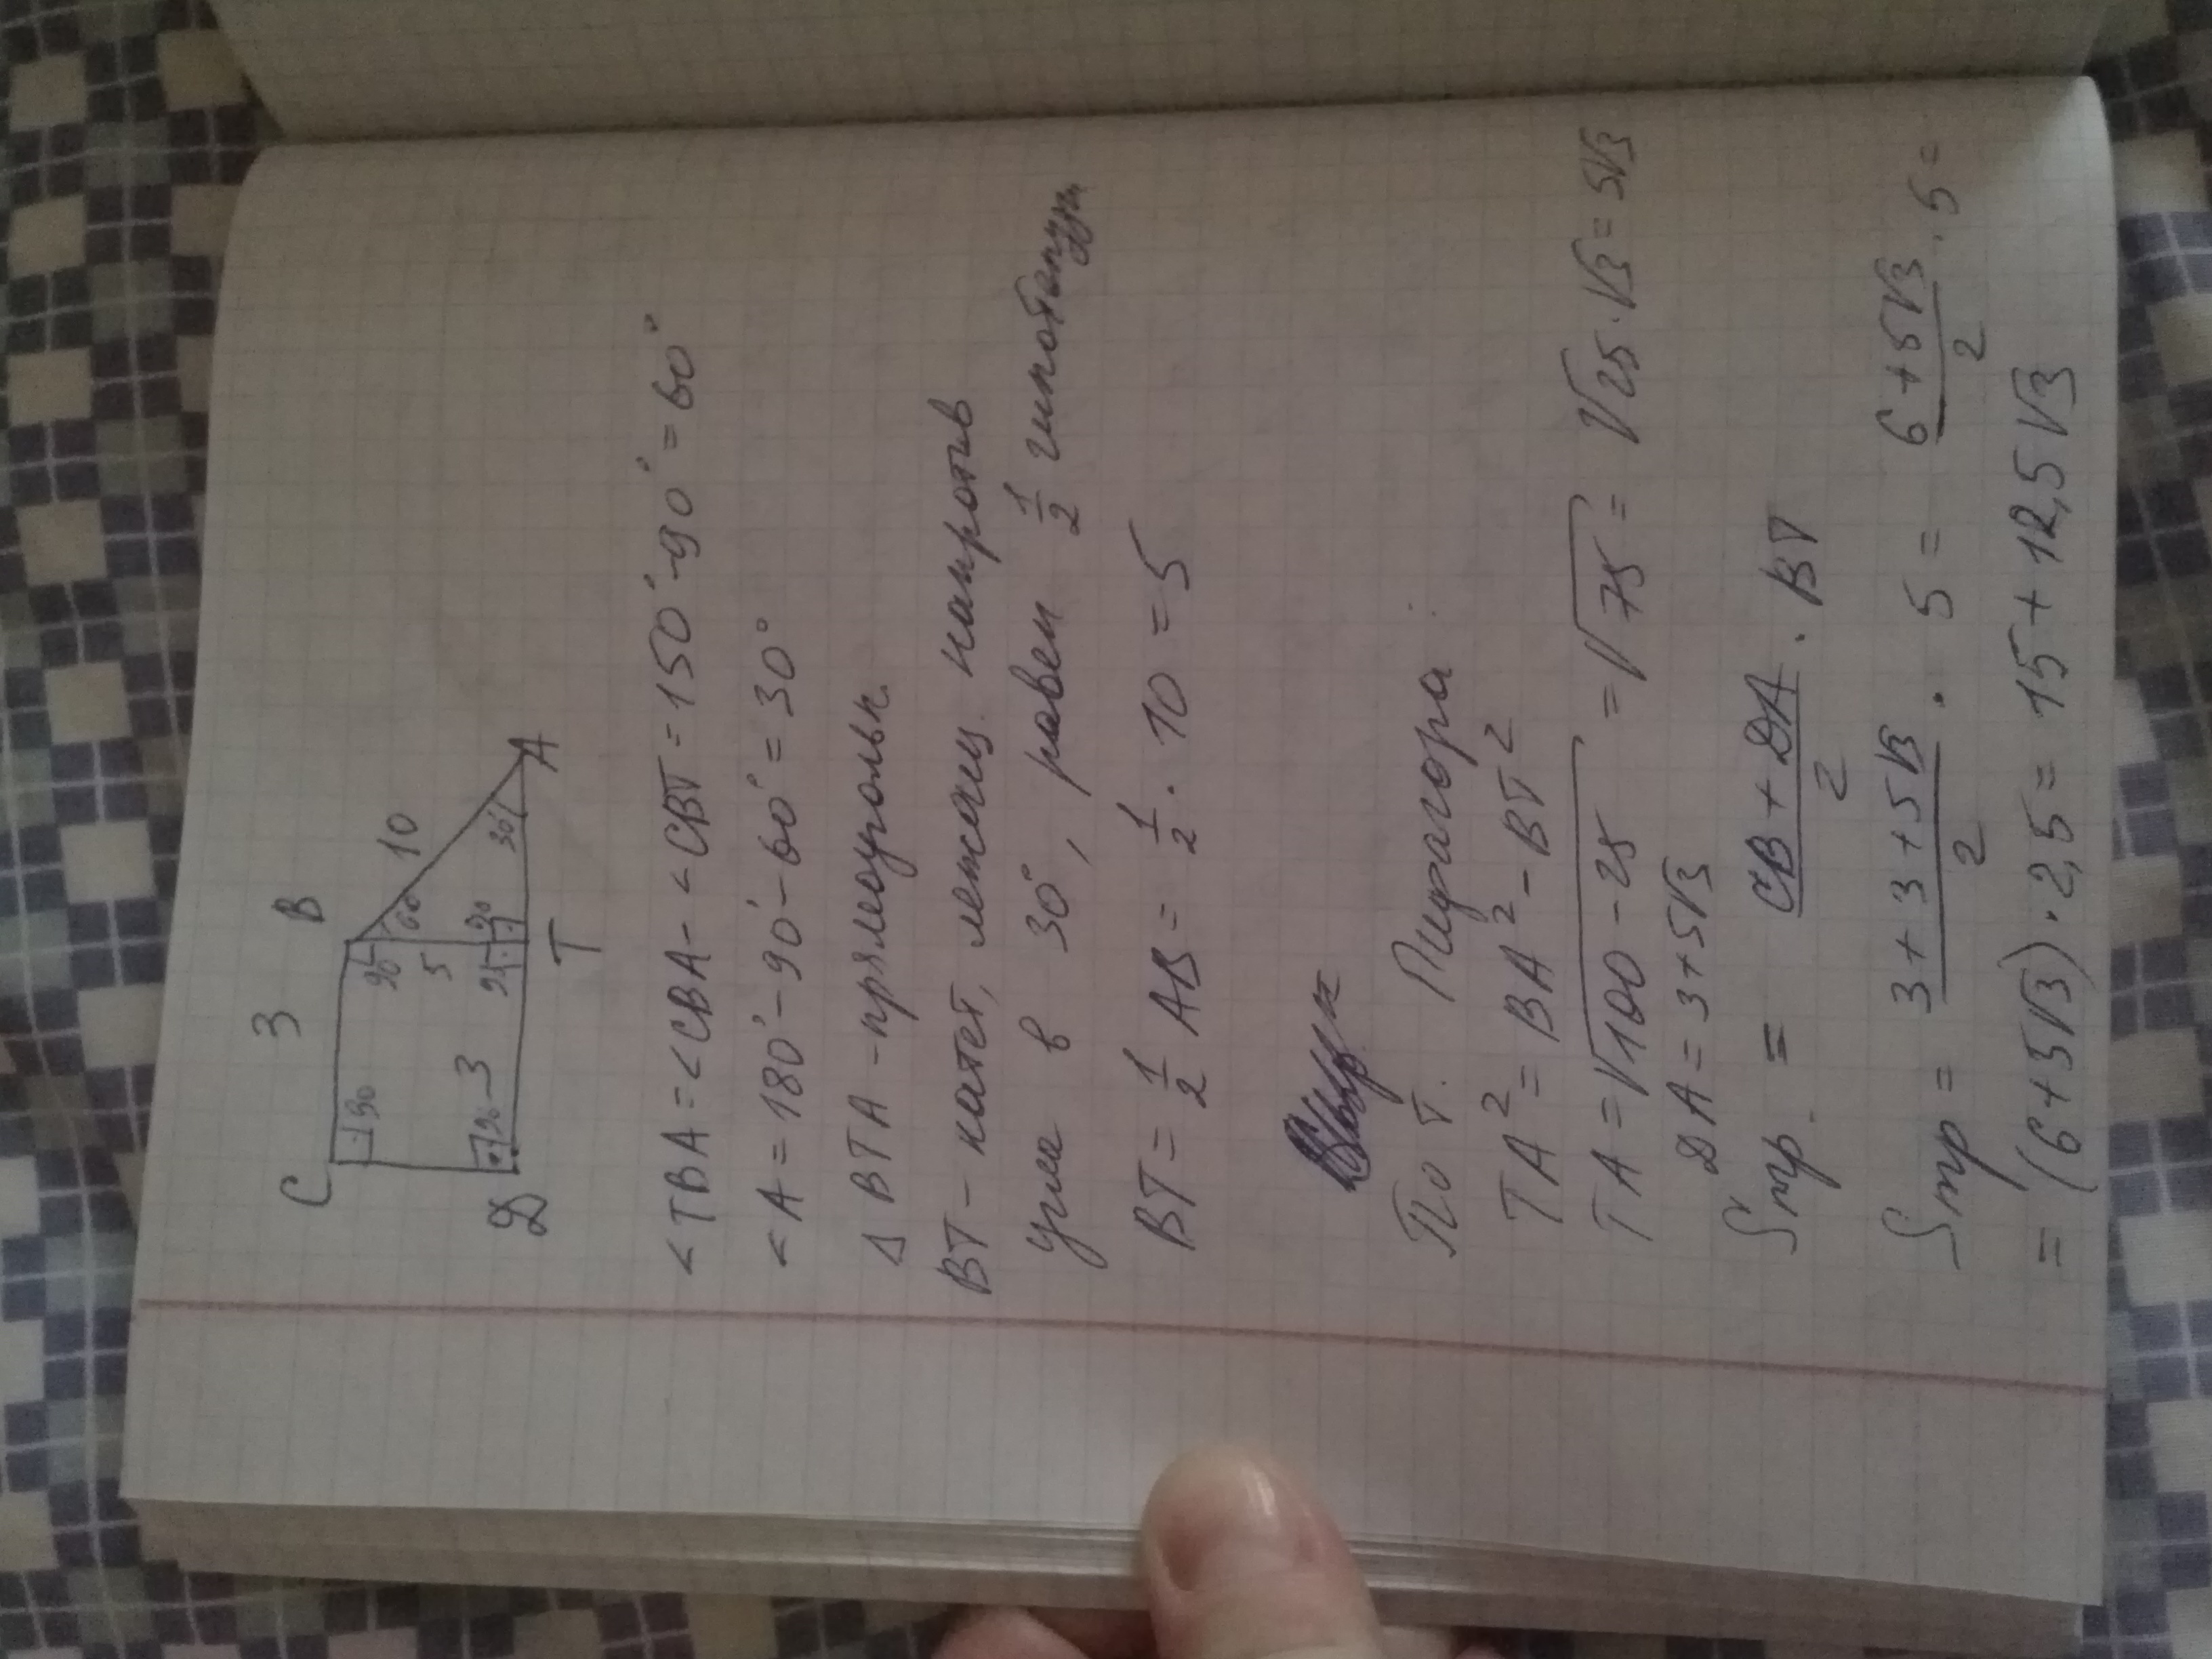 3
C B
90 90 60 10
5
90 3 90 90 30
Д T A
<TBA = <CBA - <CBT = 150° - 90° = 60°
<A = 180° - 90° - 60° = 30°
Δ BTA - прямоугольн.
BT - катет, лежащ. напротив
угла в 30°, равен 1/2 гипотенузы
BT = 1/2 AB = 1/2 · 10 = 5
По т. Пифагора:
TA² = BA² - BT²
TA = √100 - 25 = √75 = √25 · √3 = 5√3
ДA = 3 + 5√3
Sтр. = CB + ДA / 2 · BT
Sтр = 3 + 3 + 5√3 / 2 · 5 = 6 + 5√3 / 2 · 5 =
= (6 + 5√3) · 2,5 = 15 + 12,5√3